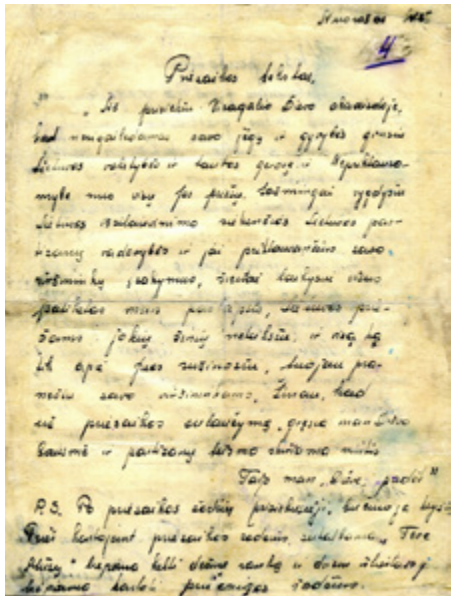 Nuorašas
4
Priesaikos tekstas,
"Aš prisiekiu Visagalio Dievo akivaizdoje,
kad nesigailėdamas savo jėgų ir gyvybės ginsiu
Lietuvos valstybės ir tautos gerovę ir Nepriklauso-
mybę nuo visų jos priešų, sąžiningai vykdysiu
Lietuvos išsilaisvinimo siekiančios Lietuvos par-
tizanų vadovybės ir jai priklausančius savo
viršininkų įsakymus, šventai laikysiu visas
patikėtas man paslaptis, Lietuvos prie-
šams jokių žinių neteiksiu, ir visą ką
tik apie juos sužinosiu, tuojau pra-
nešiu savo viršininkams, Žinau, kad
už priesaikos sulaužymą gresia man Dievo
bausmė ir partizanų teismo mirtis
Taip man, Dieve, padėk"
P.S. Po priesaikos žodžių
Prieš kartojant priesaikos žodžius,
kelti dešinę ranką ir
kartoti žodžius.